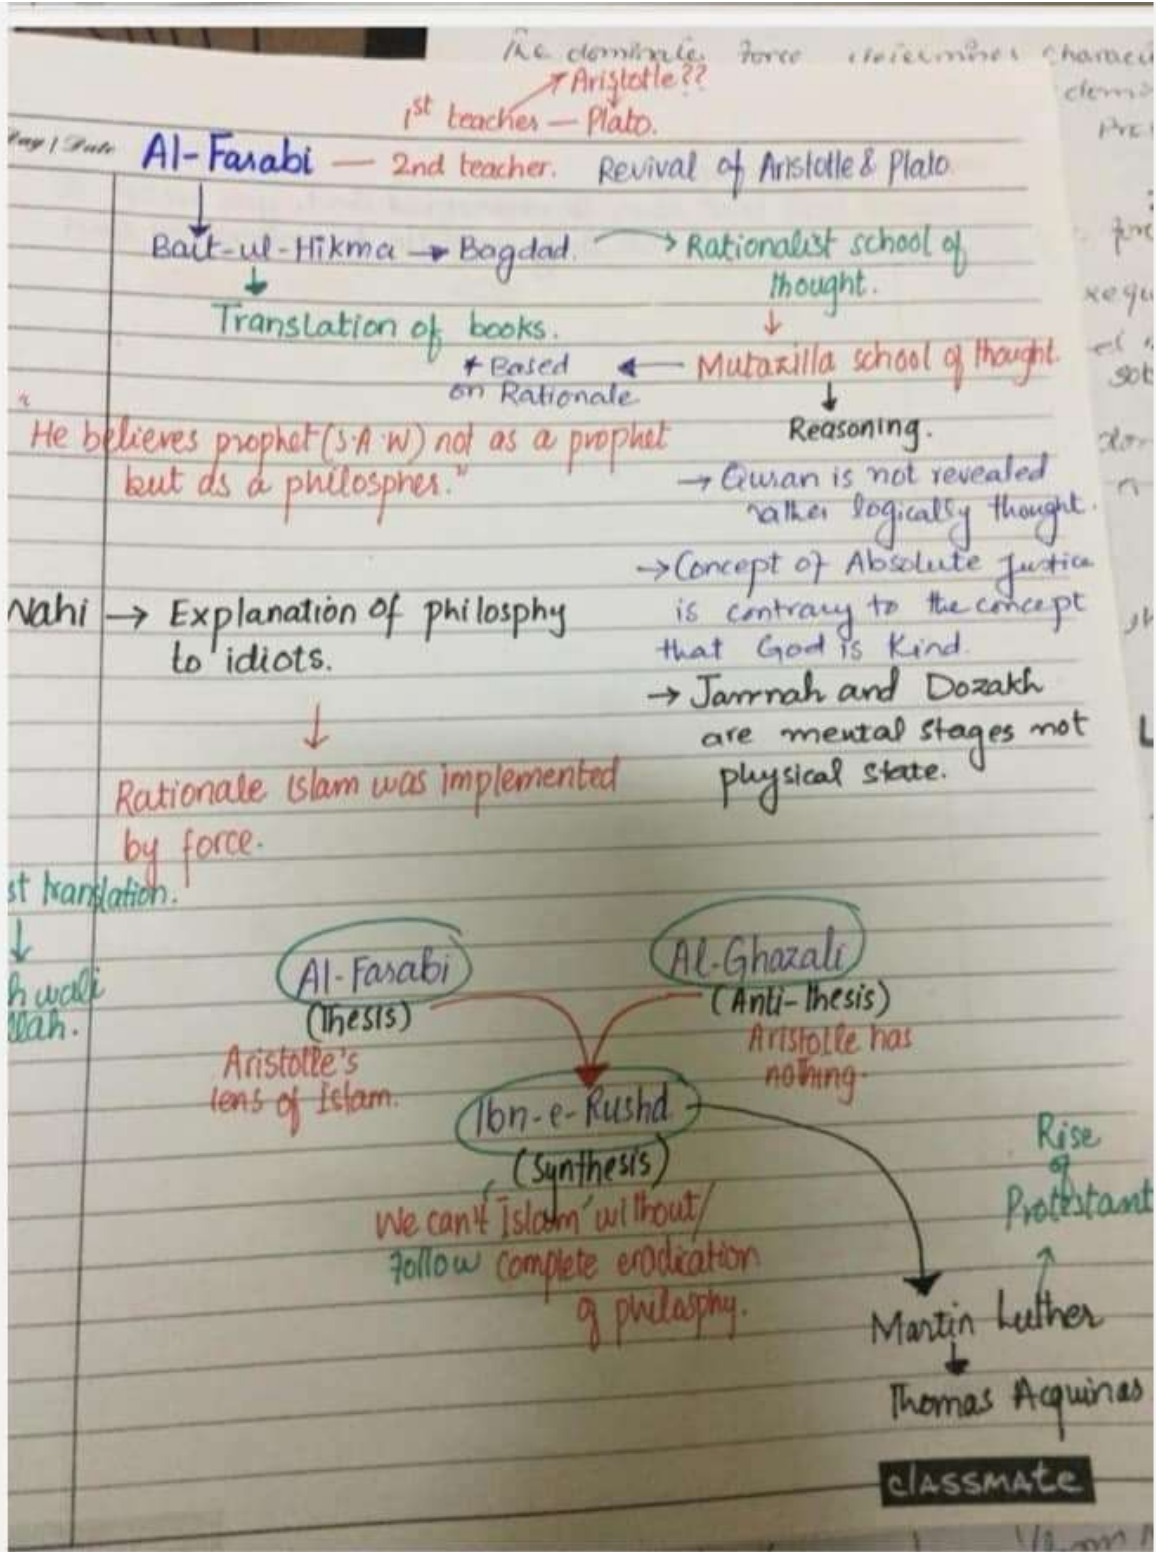 The dominate force determines
Aristotle??
1st teacher — Plato.
Day / Date
Al-Farabi — 2nd teacher. Revival of Aristotle & Plato
Bait-ul-Hikma → Bagdad. → Rationalist school of
thought.
Translation of books.
* Based ← Mutazilla school of thought.
on Rationale
Reasoning.
"He believes prophet (S.A.W) not as a prophet
but as a philospher."
→ Quran is not revealed
rather logically thought.
→ Concept of Absolute Justice
is contrary to the concept
that God is Kind.
Wahi → Explanation of philosphy
to idiots.
→ Jannah and Dozakh
are mental stages not
physical state.
Rationale Islam was implemented
by force.
st translation.
h wali
llah.
Al-Farabi
(Thesis)
Aristotle's
lens of Islam.
Al-Ghazali
(Anti-thesis)
Aristotle has
nothing.
Ibn-e-Rushd
(Synthesis)
We can't 'Islam' without/
Follow complete eradication
of philosphy.
Rise
of
Protestant
Martin Luther
Thomas Acquinas
classmate